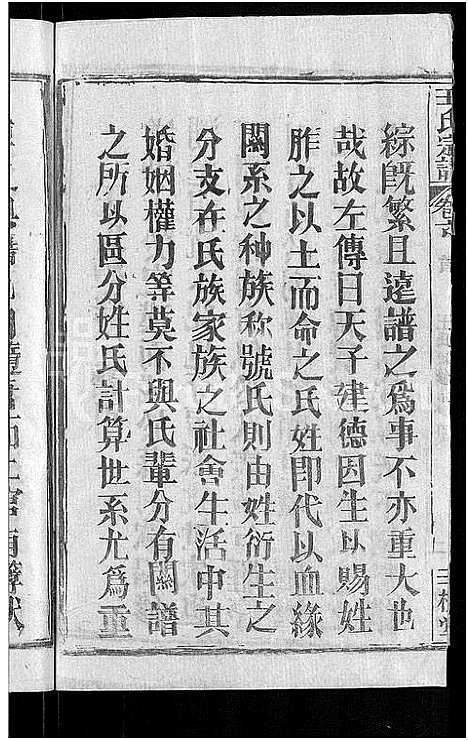 王氏宗譜
綜既繁且遠譜之爲事不亦重大也
哉故左傳曰天子建德因生以賜姓
胙之以土而命之氏姓即代以血緣
關系之种族称號氏則由姓衍生之
分支在氏族家族之社會生活中其
婚姻權力等莫不與氏輩分有關譜
之所以區分姓氏計算世系尤爲重